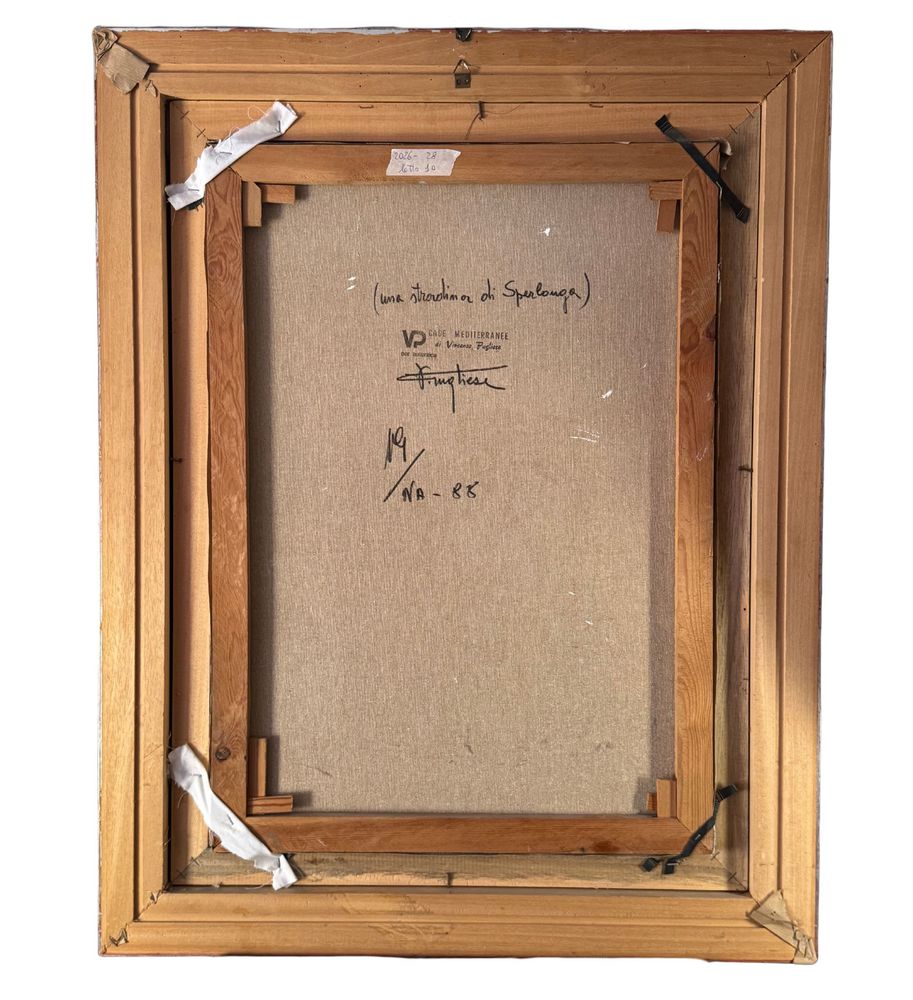 2026- 28
lotto 10
(una stradina di Sperlonga)
VP CASE MEDITERRANEE
di Vincenzo Pugliese
per autentica
V. Pugliese
NA - 88